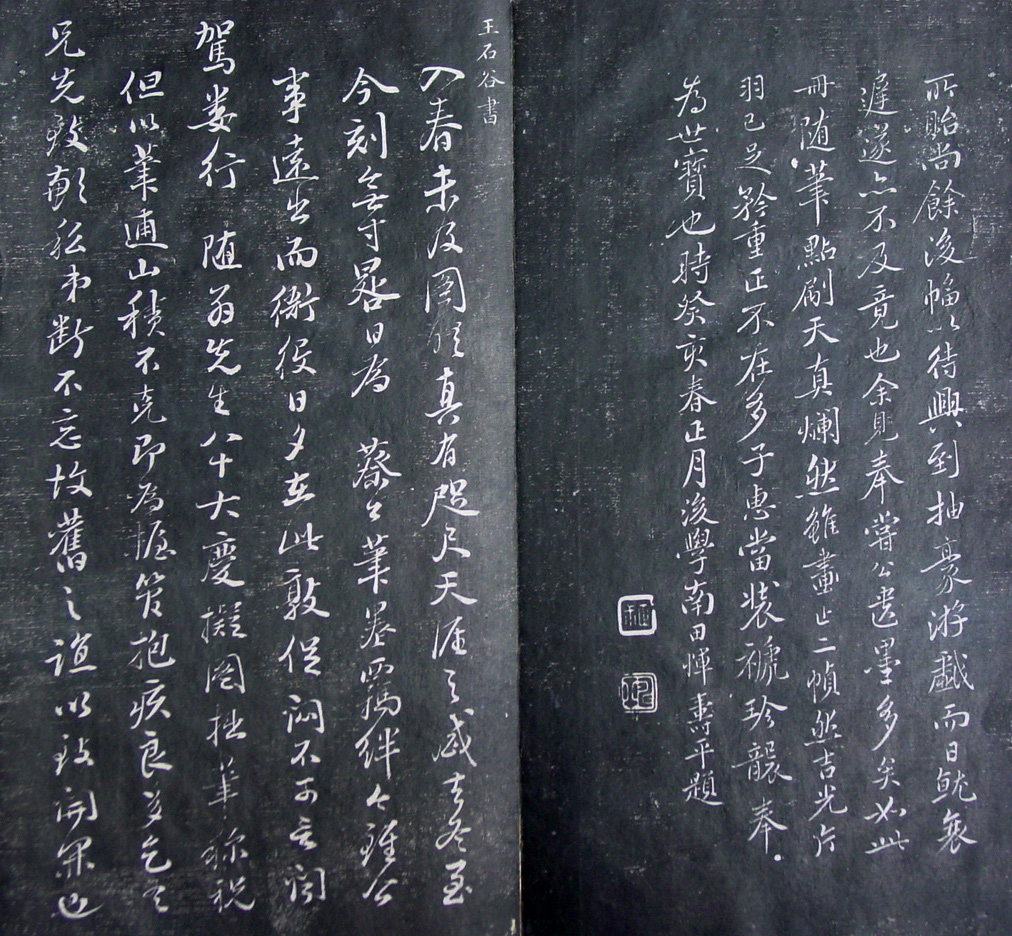 所貽尚餘後幅以待興到抽豪游戲而日就衰
遲遂亦不及竟也余見奉嘗公遺墨多矣如此
冊随筆點刷天真爛然雖畫止二幀然吉光片
羽已足矜重正不在多子惠當装褫珍襲奉
為世寶也時癸亥春正月後學南田惲壽平題
王石谷書
入春未及圖晤真有咫尺天涯之感去冬至
今刻無寸晷日為 蔡公筆墨羈絆今雖公
事遠出而衙役日夕在此敦促悶不可言聞
駕婁行 随翁先生八十大慶擬圖拙筆稱祝
但以筆逋山積不克即為握管抱疾良多乞
兄先致私弟斷不忘故舊之誼以致開罪也